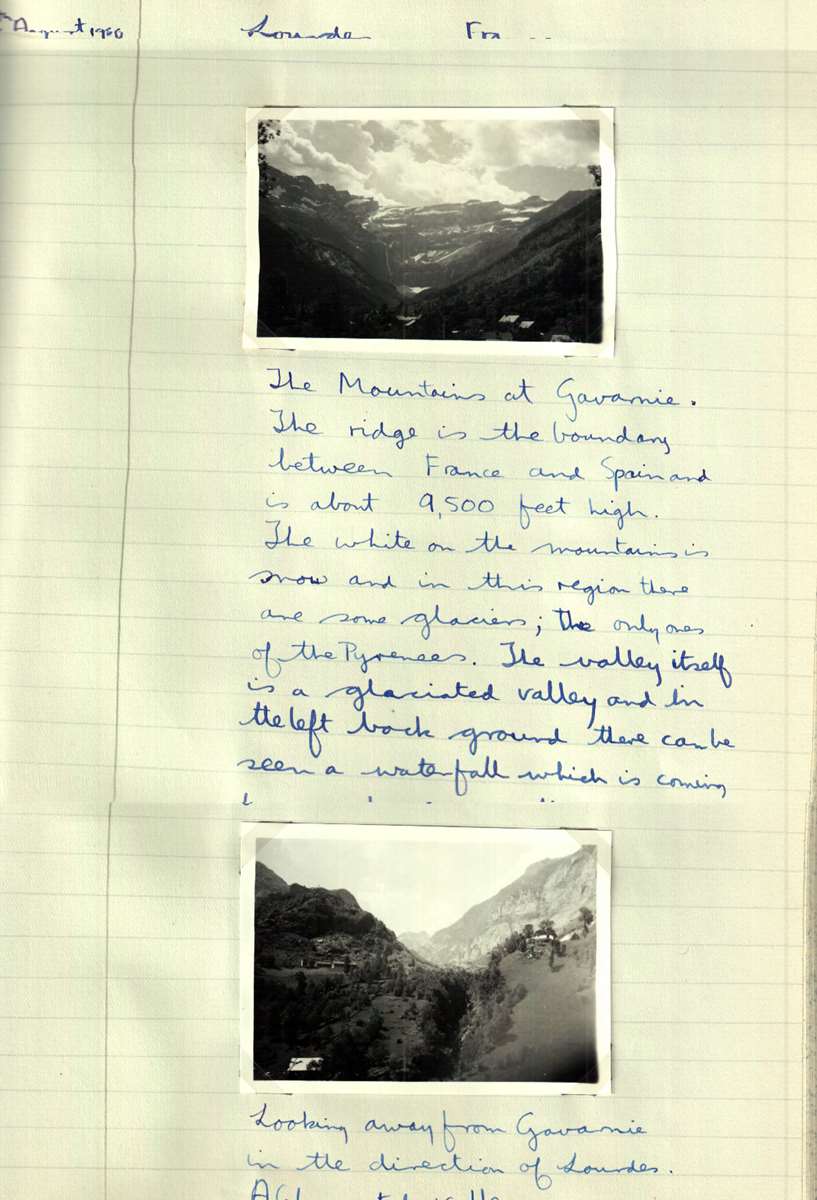 August 1950
Lourdes Fra
The Mountains at Gavarnie.
The ridge is the boundary
between France and Spain and
is about 9,500 feet high.
The white on the mountains is
snow and in this region there
are some glaciers; the only ones
of the Pyrenees. The valley itself
is a glaciated valley and in
the left back ground there can be
seen a waterfall which is coming
Looking away from Gavarnie
in the direction of Lourdes.